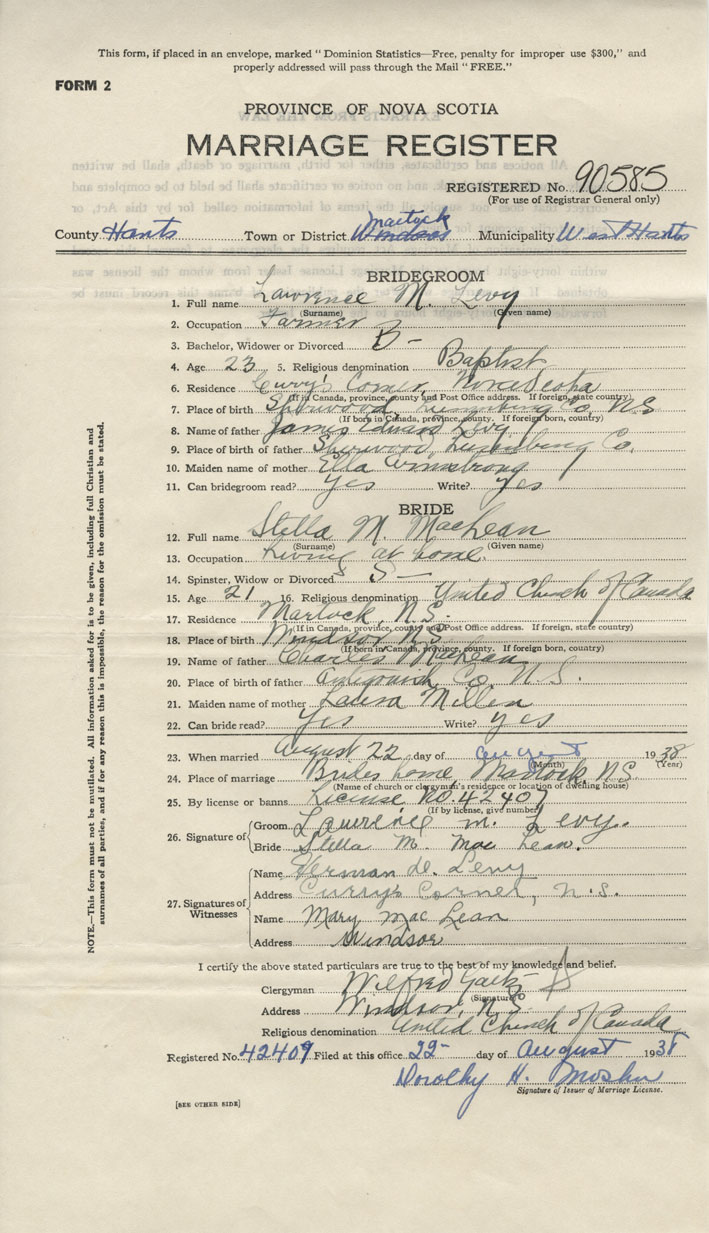 This form, if placed in an envelope, marked "Dominion Statistics—Free, penalty for improper use $300," and
properly addressed will pass through the Mail "FREE."
FORM 2
PROVINCE OF NOVA SCOTIA
MARRIAGE REGISTER
REGISTERED No. 90585
(For use of Registrar General only)
Martock
County Hants Town or District Windsor Municipality West Hants
BRIDEGROOM
1. Full name Lawrence M. Levy
(Surname) (Given name)
2. Occupation Farmer
3. Bachelor, Widower or Divorced B-
4. Age 23 5. Religious denomination Baptist
6. Residence Curry's Corner, Nova Scotia
(If in Canada, province, county and Post Office address. If foreign, state country)
7. Place of birth Sherwood, Lunenburg Co. N.S
(If born in Canada, province, county. If foreign born, country)
8. Name of father James Edward Levy
9. Place of birth of father Sherwood, Lunenburg Co.
10. Maiden name of mother Ella Armstrong
11. Can bridegroom read? Yes Write? yes
BRIDE
12. Full name Stella M. MacLean
(Surname) (Given name)
13. Occupation Living at home.
14. Spinster, Widow or Divorced S—
15. Age 21 16. Religious denomination United Church of Canada
17. Residence Martock, N.S.
(If in Canada, province, county and Post Office address. If foreign, state country)
18. Place of birth Windsor N.S.
(If born in Canada, province, county. If foreign born, country)
19. Name of father Charles MacLean
20. Place of birth of father Antigonish Co. N.S.
21. Maiden name of mother Laura Millen
22. Can bride read? Yes Write? yes
23. When married August 22 day of August 1938
(Month) (Year)
24. Place of marriage Brides home, Martock, N.S
(Name of church or clergyman's residence or location of dwelling house)
25. By license or banns License No. 42407
(If by license, give number)
26. Signature of Groom Lawrence M. Levy.
Bride Stella M. Mac Lean.
27. Signatures of Witnesses
Name Levy
Address Curry's Corner, N.S.
Name Mary Mac Lean
Address Windsor
I certify the above stated particulars are true to the best of my knowledge and belief.
Clergyman Wilfred Gaetz
(Signature)
Address Windsor, N.S
Religious denomination United Church of Canada
Registered No. 42407 Filed at this office 22- day of August 1938
Dorothy H. Mosher
Signature of Issuer of Marriage License.
[SEE OTHER SIDE]
NOTE.—This form must not be mutilated. All information asked for is to be given, including full Christian and
surnames of all parties, and if for any reason this is impossible, the reason for the omission must be stated.